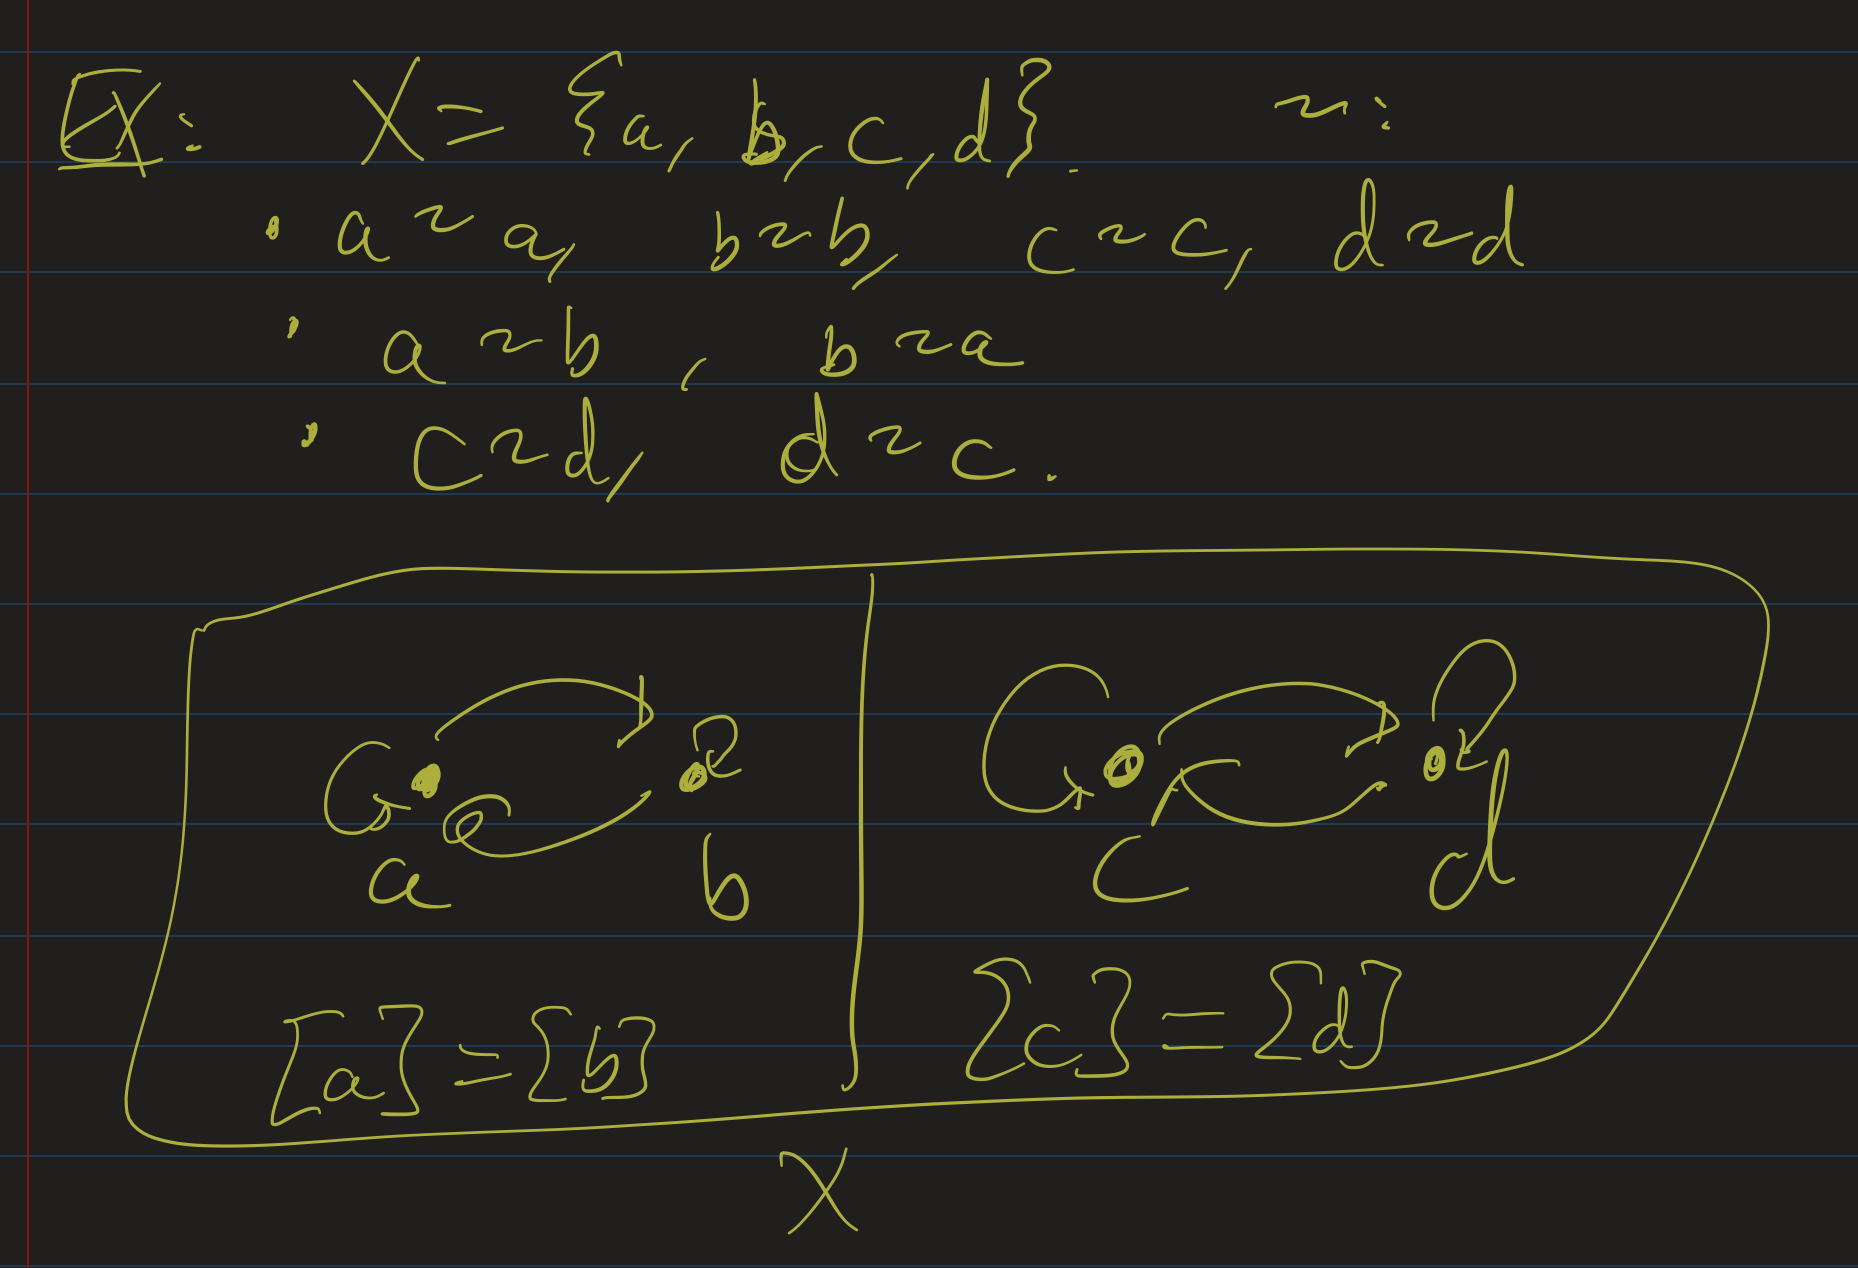 Ex: X = {a, b, c, d}. ~:
• a ~ a, b ~ b, c ~ c, d ~ d
• a ~ b, b ~ a
• c ~ d, d ~ c.
a b c d
[a] = [b] [c] = [d]
X